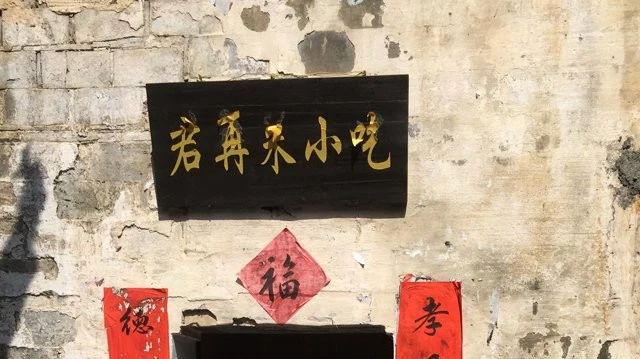 君再来小吃
福
德
孝